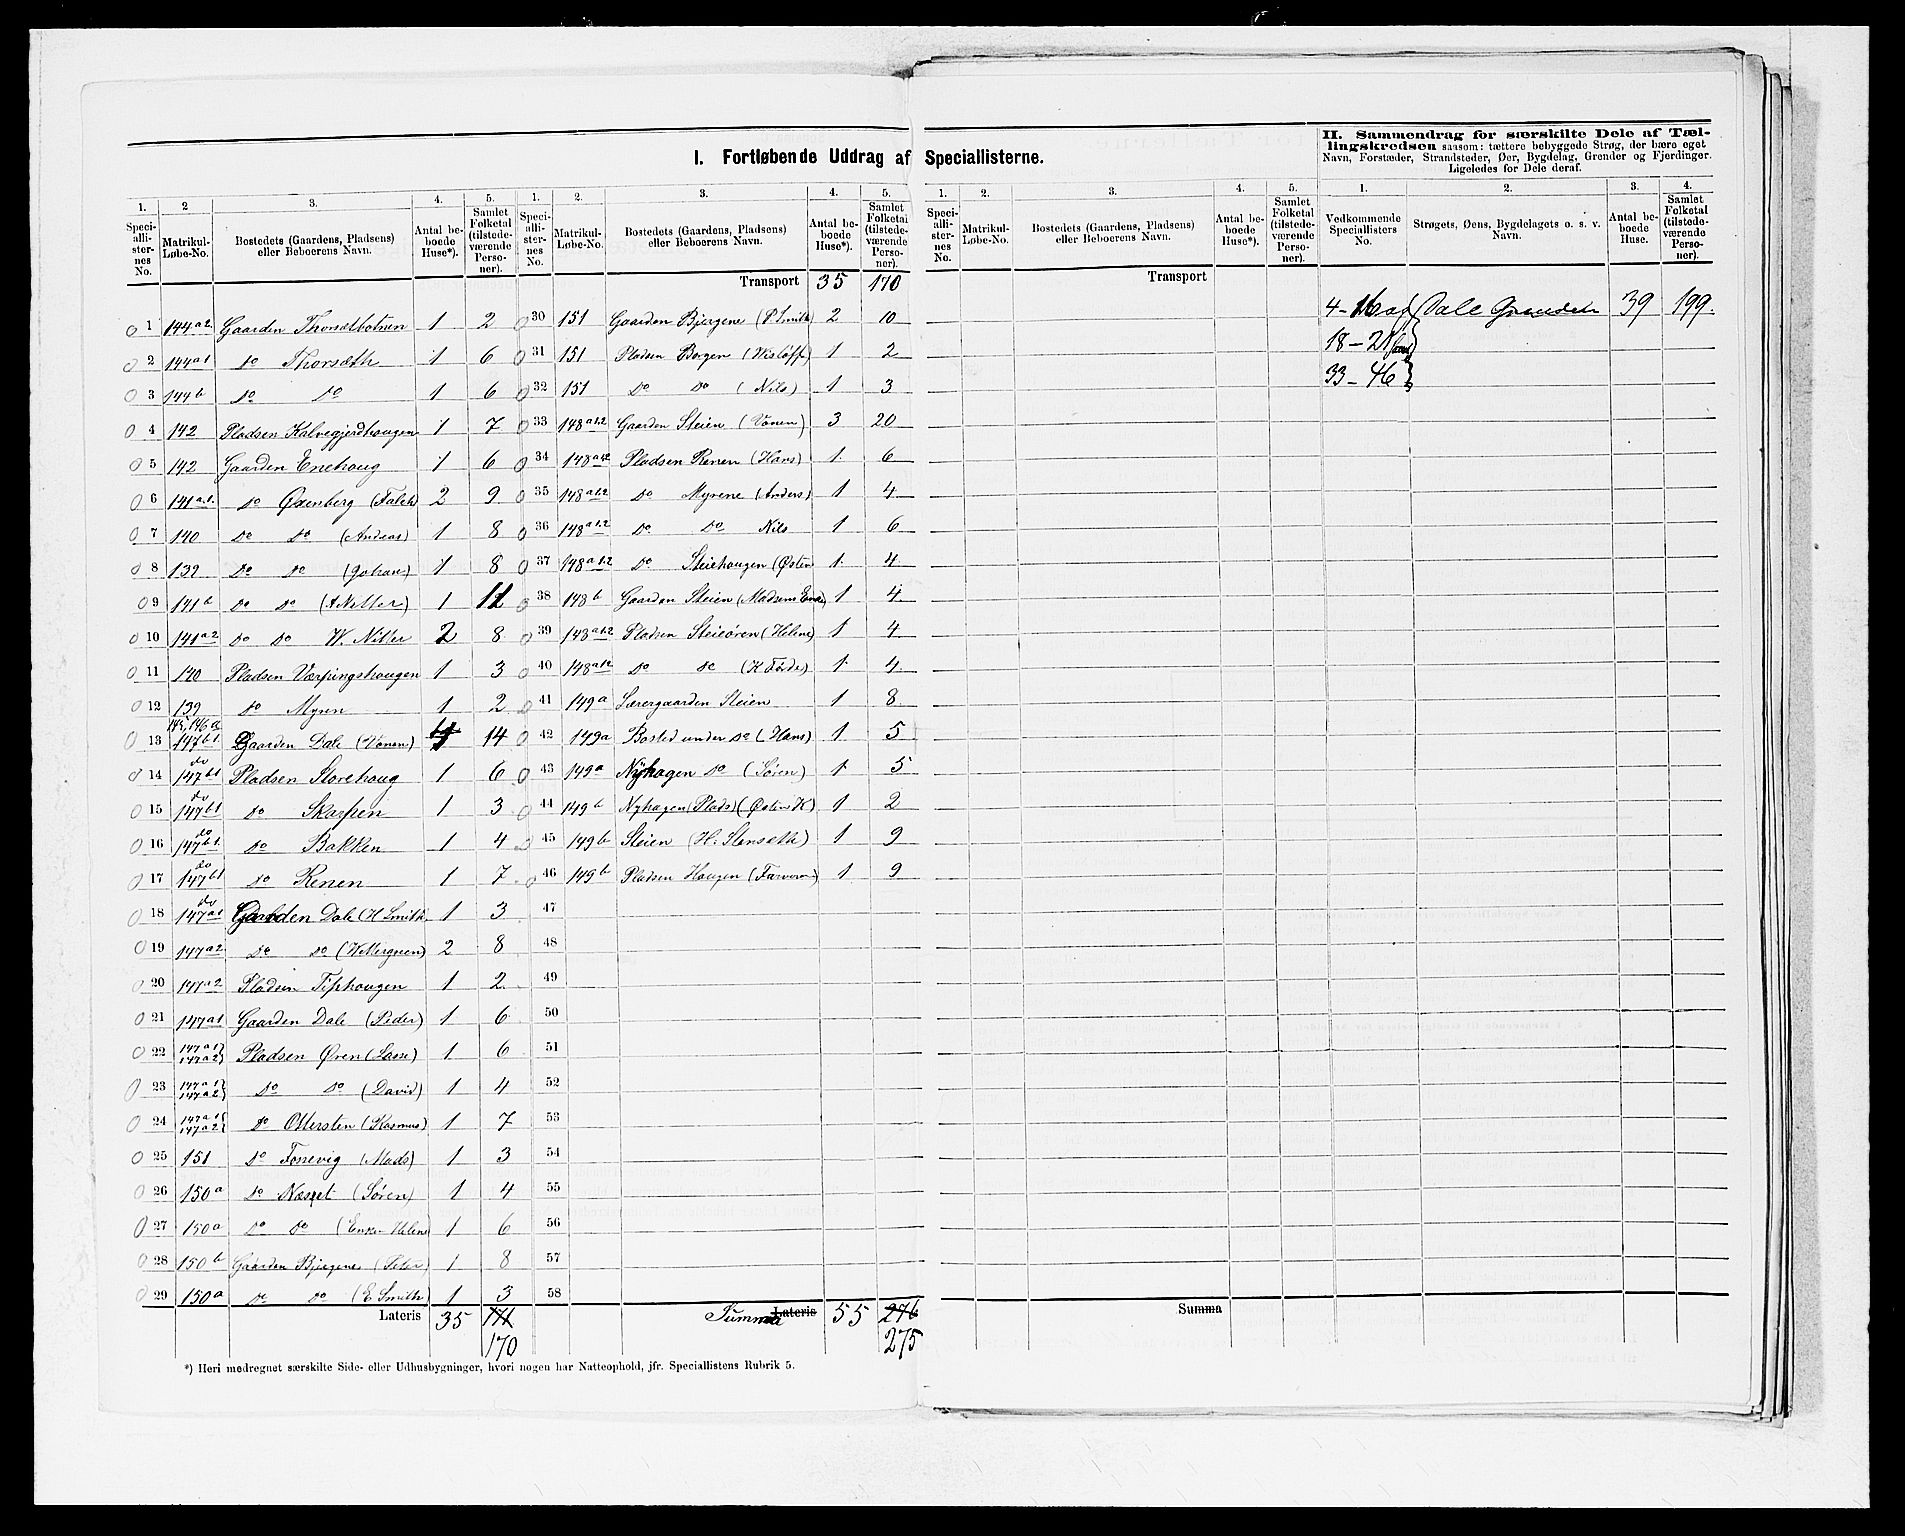 I. Fortløbende Uddrag af Speciallisterne.
II. Sammendrag for særskilte Dele af Tæl-
lingskredsen saasom: tættere bebyggede Strøg, der bære eget
Navn, Forstæder, Strandsteder, Øer, Bygdelag, Grender og Fjerdinger.
Ligeledes for Dele deraf.
1. 2 3. 4. 5. 1. 2. 3. 4. 5. 1. 2. 3. 4. 5. 1. 2. 3. 4.
Speciallisternes No. Matrikul-Løbe-No. Bostedets (Gaardens, Pladsens) eller Beboerens Navn. Antal beboede Huse*). Samlet Folketal (tilstedeværende Personer).
Speciallisternes No. Matrikul-Løbe-No. Bostedets (Gaardens, Pladsens) eller Beboerens Navn. Antal beboede Huse*). Samlet Folketal (tilstedeværende Personer).
Speciallisternes No. Matrikul-Løbe-No. Bostedets (Gaardens, Pladsens) eller Beboerens Navn. Antal beboede Huse*). Samlet Folketal (tilstedeværende Personer).
Vedkommende Speciallisters No. Strøgets, Øens, Bygdelagets o. s. v. Navn. Antal beboede Huse. Samlet Folketal (tilstedeværende Personer).
1 144a2 Gaarden Thorsætbotnen 1 2
2 144a1 do Thorsæth 1 6
3 144b do do 1 6
4 142 Pladsen Kalvegjerdhaugen 1 7
5 142 Gaarden Enehaug 1 6
6 141a1. do Øxenberg (Falch 2 9
7 140 do do (Andeas) 1 8
8 139 do do (Johan) 1 8
9 141b do do (A Nitter) 1 11
10 141a2 do do W. Nitter 2 8
11 140 Pladsen Værpingshaugen 1 3
12 139 do Myren 1 2
13 145, 146 a 147b1 Gaarden Dale (Vonen) 4 14
14 do 147b1 Pladsen Storehaug 1 6
15 do 147b1 do Skarpen 1 3
16 do 147b1 do Bakken 1 4
17 do 147b1 do Renen 1 7
18 do 147a1 Gaarden Dale (H Smith 1 3
19 147a2 do do (Wettergreen) 2 8
20 147a2 Pladsen Tiphaugen 1 2
21 147a1 Gaarden Dale (Peder) 1 6
22 147a1 147a2 Pladsen Øren (Lasse) 1 6
23 147a1 147a2 do do (David) 1 4
24 147a1 147a2 do Ottersten (Rasmus) 1 7
25 151 do Fonevig (Mads) 1 3
26 150a do Næsset (Søren) 1 4
27 150a do do (Enke Helene 1 6
28 150b Gaarden Bjergene (Peter) 1 8
29 150a do do (E Smith 1 3
Lateris 35 171
170
Transport 35 170
30 151 Gaarden Bjergene (P. Smith 2 10
31 151 Pladsen Borgen (Wisløff) 1 2
32 151 do do (Nils) 1 3
33 148a1.2 Gaarden Steien (Vonen) 3 20
34 148a1.2 Pladsen Renen (Hans) 1 6
35 148a1.2 do Myrene (Anders) 1 4
36 148a1.2 do do Nils 1 6
37 148a1.2 do Steiehaugen (Østen 1 4
38 148b Gaarden Steien (Madsens Enke) 1 4
39 148a1.2 Pladsen Steieøren (Helene) 1 4
40 148a1.2 do do 1 4
41 149a Lærergaarden Steien 1 8
42 149a Bosted under do (Hans) 1 5
43 149a Nyhagen do (Søren) 1 5
44 149b Nyhagen (Plads) (Østen K) 1 2
45 149b Steien (H. Stenseth) 1 9
46 149b Pladsen Haugen 1 9
47
48
49
50
51
52
53
54
55
56
57
58
Lateris Summa 55 276
275
Transport
Summa
4-16 Dale Grenden 39 199.
18-21
33-46
*) Heri medregnet særskilte Side- eller Udhusbygninger, hvori nogen har Natteophold, jfr. Speciallistens Rubrik 5.